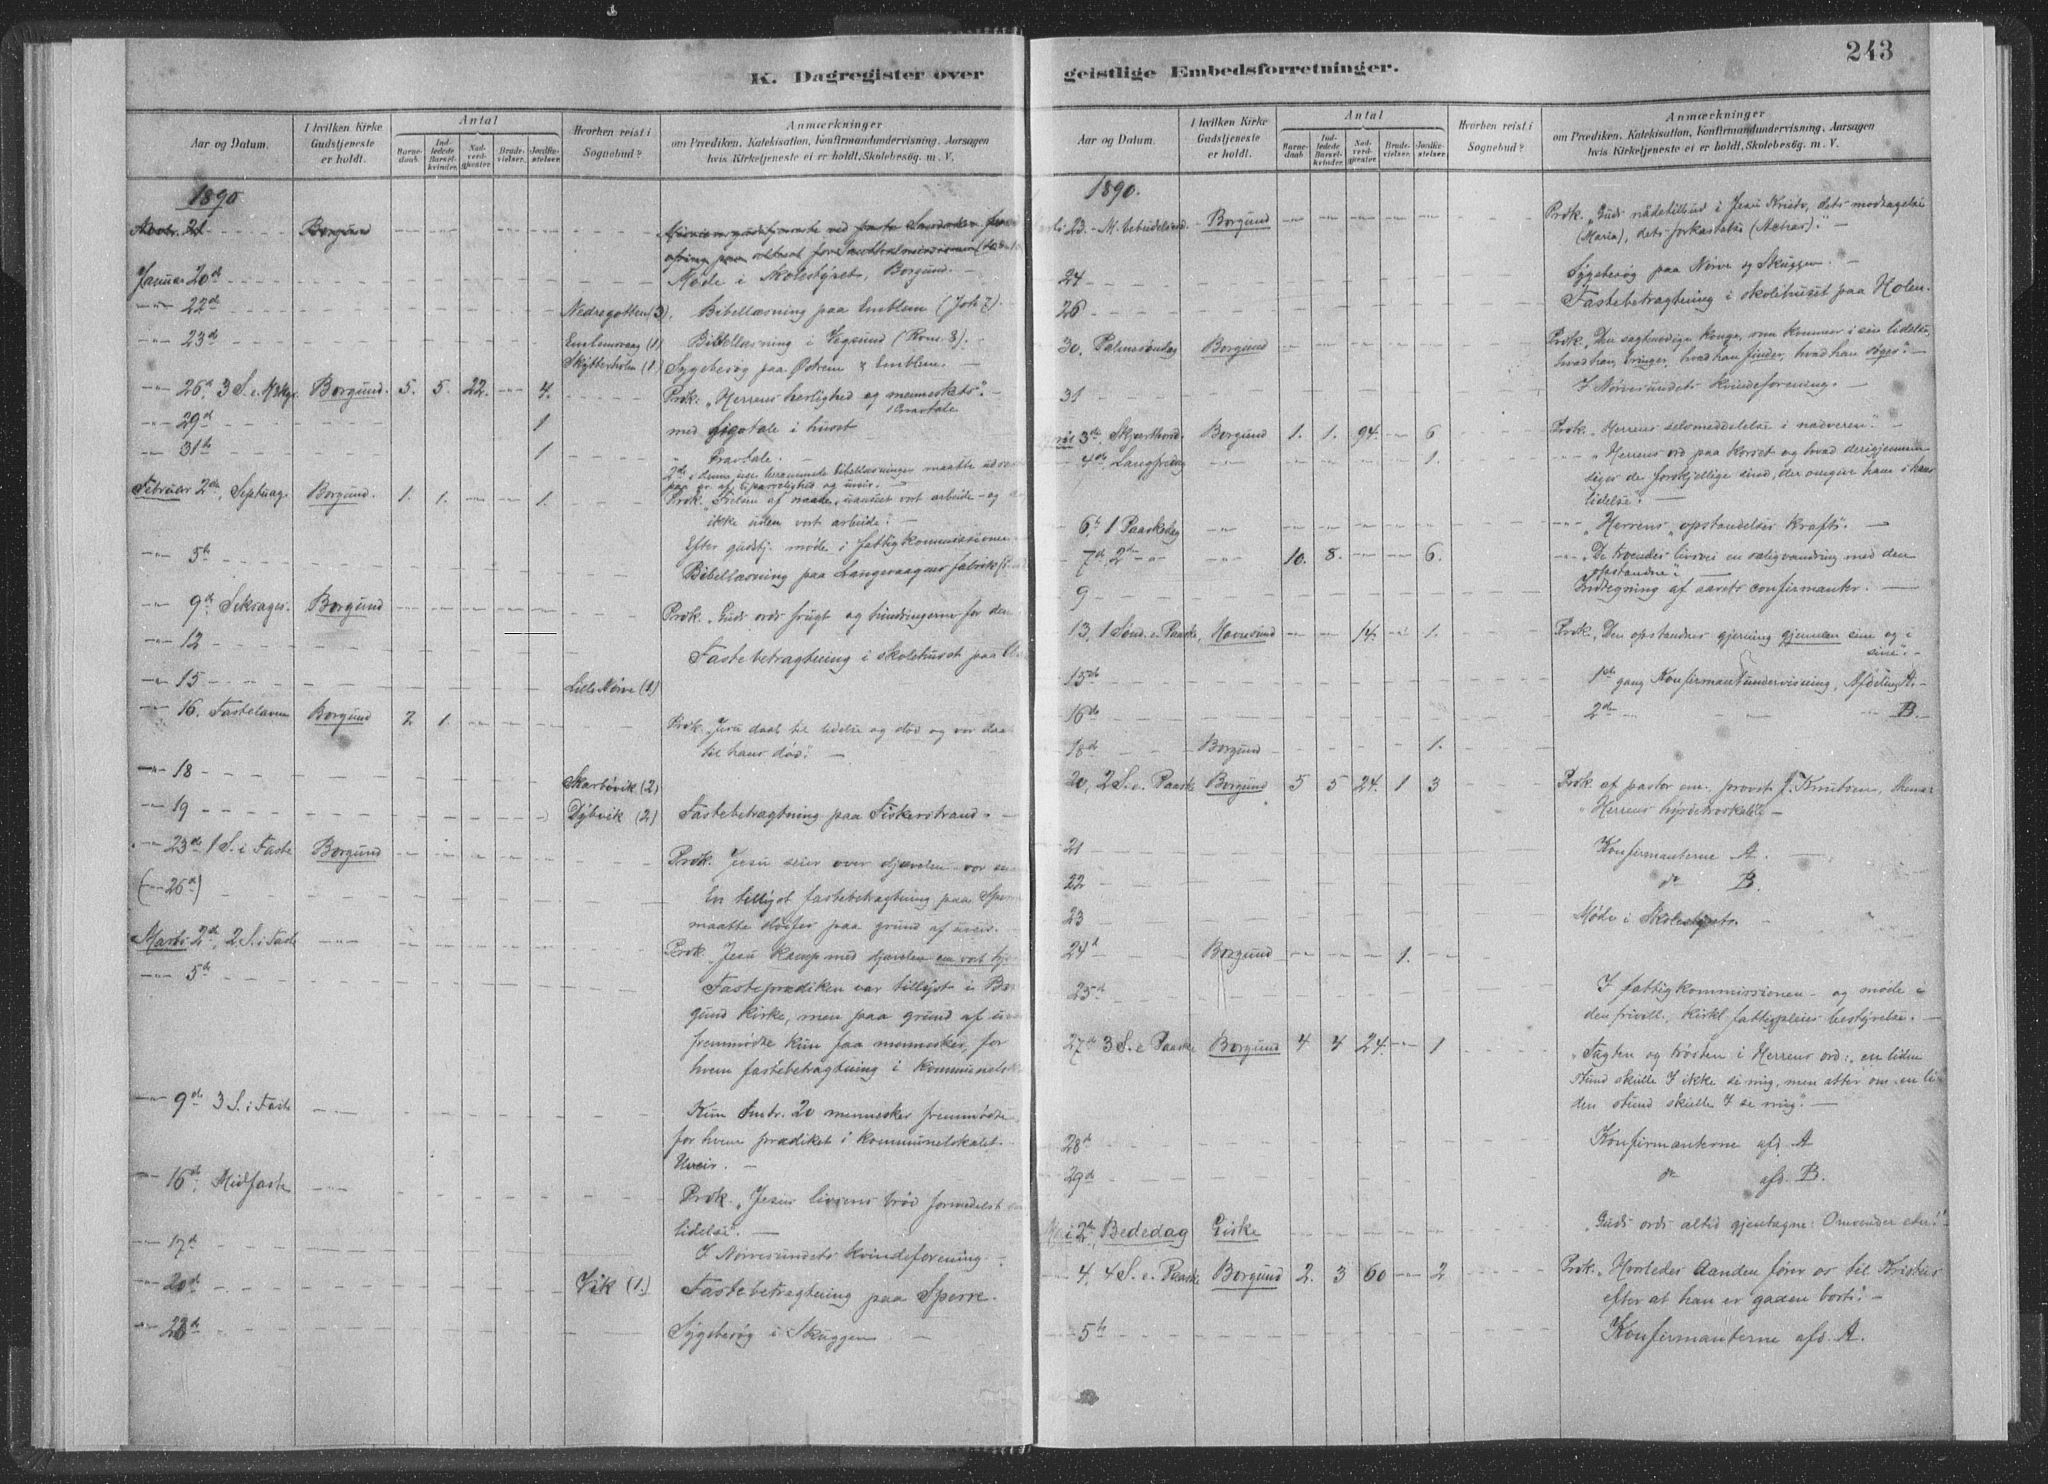 243
K. Dagregister over geistlige Embedsforretninger.
Aar og Datum. I hvilken Kirke Gudstjeneste er holdt. Antal Barnedaab. Indledede Barselkvinder. Nadverdgjester. Brudevielser. Jordfæstelser. Hvorhen reist i Sognebud? Anmærkninger om Prædiken, Katekisation, Konfirmandundervisning, Aarsagen hvis Kirketjeneste ei er holdt, Skolebesøg. m. V.
1890
21 Borgund
Januar 20de Møde i Skolestyret, Borgund.
22de Nedregotten (3), Bibellæsning paa Emblem (Joh 7)
23de Emlemsvaag (1) Bibellæsning i Vegsund (Rom. 8).
Skytterholm (1) Sygebesøg paa Østrem & Emblem.
26de 3 S. e. H3kg. Borgund. 5. 5. 22. 4. Prdk. "Herrens herlighed og menneskets".
29de 1 med Ligtale i huset & Gravtale
31te 1 " Gravtale.
Februar 2de, Septuag. Borgund. 1. 1. 1. Prdk. "Frelsen af naade, uanset vort arbeide - og
ikke uden vort arbeide".
Efter gudstj. møde i fattigkommissionen
5te Bibellæsning paa Langevaagens fabrik
9de Seksages. Borgund Prdk. "Guds ords frugt og hindringerne for den
12 Fastebetragtning i skolehuset paa
15 Lille Nørve (1)
16. Fastelavn Borgund 2 1. Prdk. "Jesu daab til lidelse og død og vor daab
til hans død".
18 Skarbøvik (2)
19 Dybvik (2) Fastebetragtning paa Fiskerstrand.
23de 1 S. i Faste Borgund Prdk. Jesu seier over djævelen vor
(26de) En tillyst fastebetragtning paa
maatte sløifes paa grund af uveir.
Marts 2de, 2 S. i Faste Prdk. "Jesu Kamp med djævelen en vort
5te Fasteprædiken var tillyst i Bor-
gund kirke, men paa grund af
fremmødte kun faa mennesker, for
hvem fastebetragtning i Kommunelok
9de 3 S. i Faste Kun omtr. 20 mennesker fremmødte,
for hvem prædiket i kommunelokalet.
Uveir.
16de Midfaste Prdk. "Jesus livsens brød formedelst
lidelse".
17de I Nørvesundets Kvindeforening.
20de Vik (1.) Fastebetragtning paa Sperre.
Sygebesøg i Skuggen
1890.
23. M. bebudelsesd. Borgund Prdk. "Guds nådetilbud i Jesu Kristo, dets modtagelse
(Maria), dets forkastelse".
24 Sygebesøg paa Nørve og Skuggen.
26 Fastebetragtning i skolehuset paa Holen.
30. Palmesøndag Borgund Prdk. "Den sagtmodige konge, som kommer i sin lidelse,
hvad han bringer, hvad han finder, hvad han søger".
31 I Nørvesundets kvindeforening.
April 3de, Skjærthorsd. Borgund 1. 1. 94. 6 Prdk. "Herrens selvmeddelelse i nadveren".
4de Langfredag 1. "Herrens ord paa korset og hvad derigjennem
siges de forskjellige sind, der omgiver ham i hans
lidelse".
6te 1 Paaskedag "Herrens opstandelses kraft".
7de 2den 10. 8. 6. "De troendes livsvei en salig vandring med den
opstandne".
9 Indtegning af aarets confirmanter.
13, 1 Sønd. e. Paaske, Hovesund 14. 1. Prdk. "Den opstandnes gjerning gjennem sine og i
sine".
15de 1ste gang Konfirmantundervisning, Afdeling A.
16de 2de B.
18de Borgund 1.
20, 2 S. e. Paaske Borgund 5 5 24. 1 3 Prdk. af pastor em. provst J. Knutsen,
"Herrens hyrdetroskab".
21 Konfirmanterne A.
22 do B.
23 Møde i Skolestyret.
24de Borgund 1.
25de I fattigkommissionen og møde i
den frivill. kirkl. fattigpleies bestyrelse.
27de 3 S. e. Paaske Borgund 4 4 24. 1 "Tugten og trøsten i Herrens ord: en liden
stund skulle I ikke se mig, men atter om en li-
den stund skulle I se mig".
28de Konfirmanterne afd. A
29de do afd. B.
Mai 2den, Bededag Giske "Guds ords altid gjentagne: Omvender eder!"
4, 4 S. e. Paaske Borgund 2. 3 60 2 Prdk. "Hvorledes Aanden fører os til Kristus
efter at han er gaaen bort".
5te Konfirmanterne afd. A.